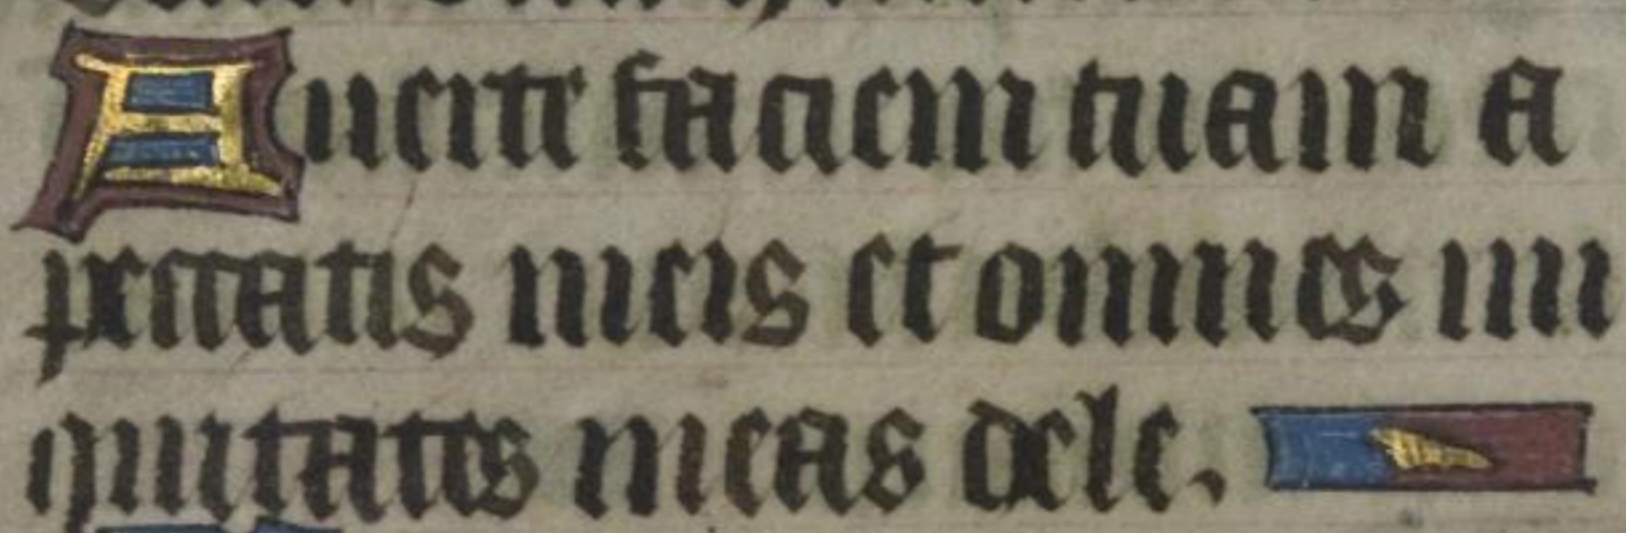 Auerte faciem tuam a
peccatis meis et omnes ini
quitates meas dele.